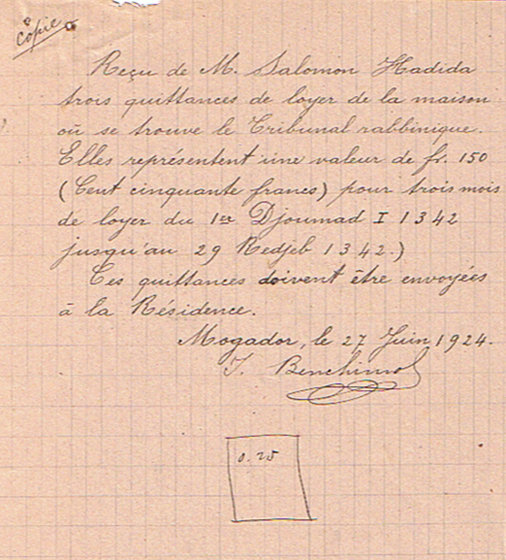 Copie
Reçu de M. Salomon Hadida
trois quittances de loyer de la maison
où se trouve le Tribunal rabbinique.
Elles représentent une valeur de fr. 150
(Cent cinquante francs) pour trois mois
de loyer du 1er Djoumad I 1342
jusqu'au 29 Redjeb 1342.)
Ces quittances doivent être envoyées
à la Résidence.
Mogador, le 27 Juin 1924.
J. Benchimol
0.25